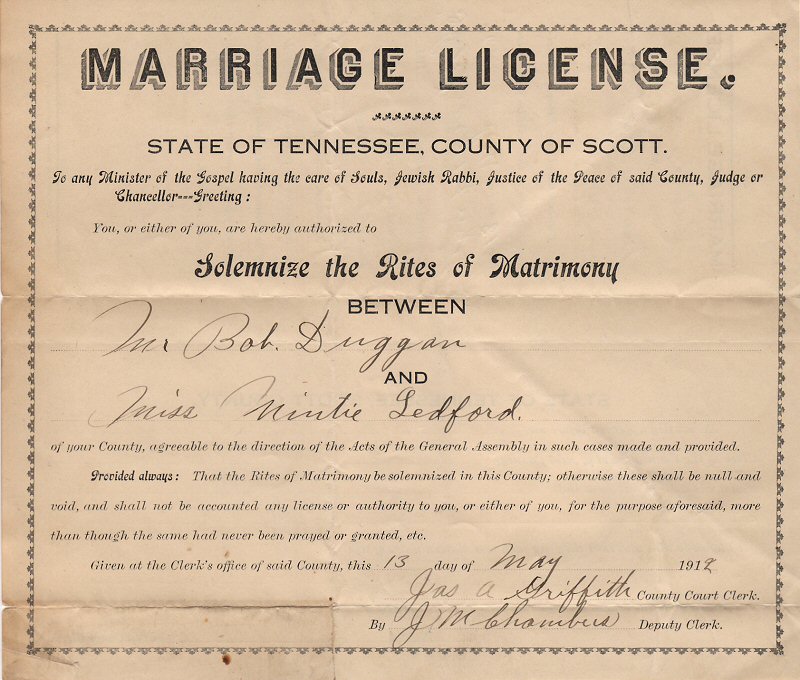 MARRIAGE LICENSE.
STATE OF TENNESSEE, COUNTY OF SCOTT.
To any Minister of the Gospel having the care of Souls, Jewish Rabbi, Justice of the Peace of said County, Judge or
Chancellor---Greeting:
You, or either of you, are hereby authorized to
Solemnize the Rites of Matrimony
BETWEEN
Mr Bob. Duggan
AND
Miss Nintie Ledford.
of your County, agreeable to the direction of the Acts of the General Assembly in such cases made and provided.
Provided always: That the Rites of Matrimony be solemnized in this County; otherwise these shall be null and
void, and shall not be accounted any license or authority to you, or either of you, for the purpose aforesaid, more
than though the same had never been prayed or granted, etc.
Given at the Clerk's office of said County, this 13 day of May 1912
Jas A Griffith County Court Clerk.
By J M Chambers Deputy Clerk.